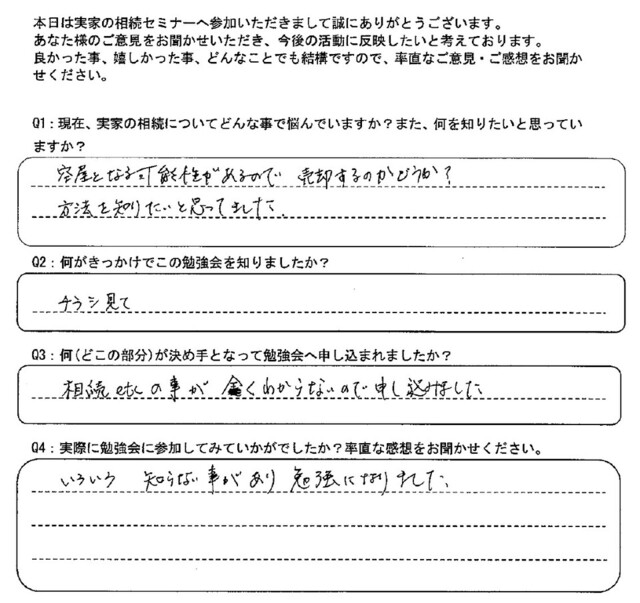 本日は実家の相続セミナーへ参加いただきまして誠にありがとうございます。
あなた様のご意見をお聞かせいただき、今後の活動に反映したいと考えております。
良かった事、嬉しかった事、どんなことでも結構ですので、率直なご意見・ご感想をお聞か
せください。
Q1：現在、実家の相続についてどんな事で悩んでいますか？また、何を知りたいと思ってい
ますか？
空屋となる可能性があるので 売却するのかどうか？
方法を知りたいと思ってました。
Q2：何がきっかけでこの勉強会を知りましたか？
チラシ見て
Q3：何（どこの部分）が決め手となって勉強会へ申し込まれましたか？
相続etcの事が全くわからないので申し込みました
Q4：実際に勉強会に参加してみていかがでしたか？率直な感想をお聞かせください。
いろいろ 知らない事があり 勉強になりました。